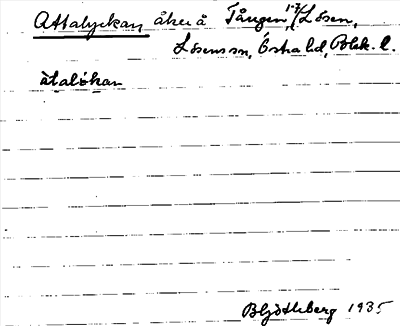 Attalyckan åker å Tången 1:7/Lösen,
Lösens sn, Östra hd, Blek. l.
àtaløkan
B Ljötleberg 1935